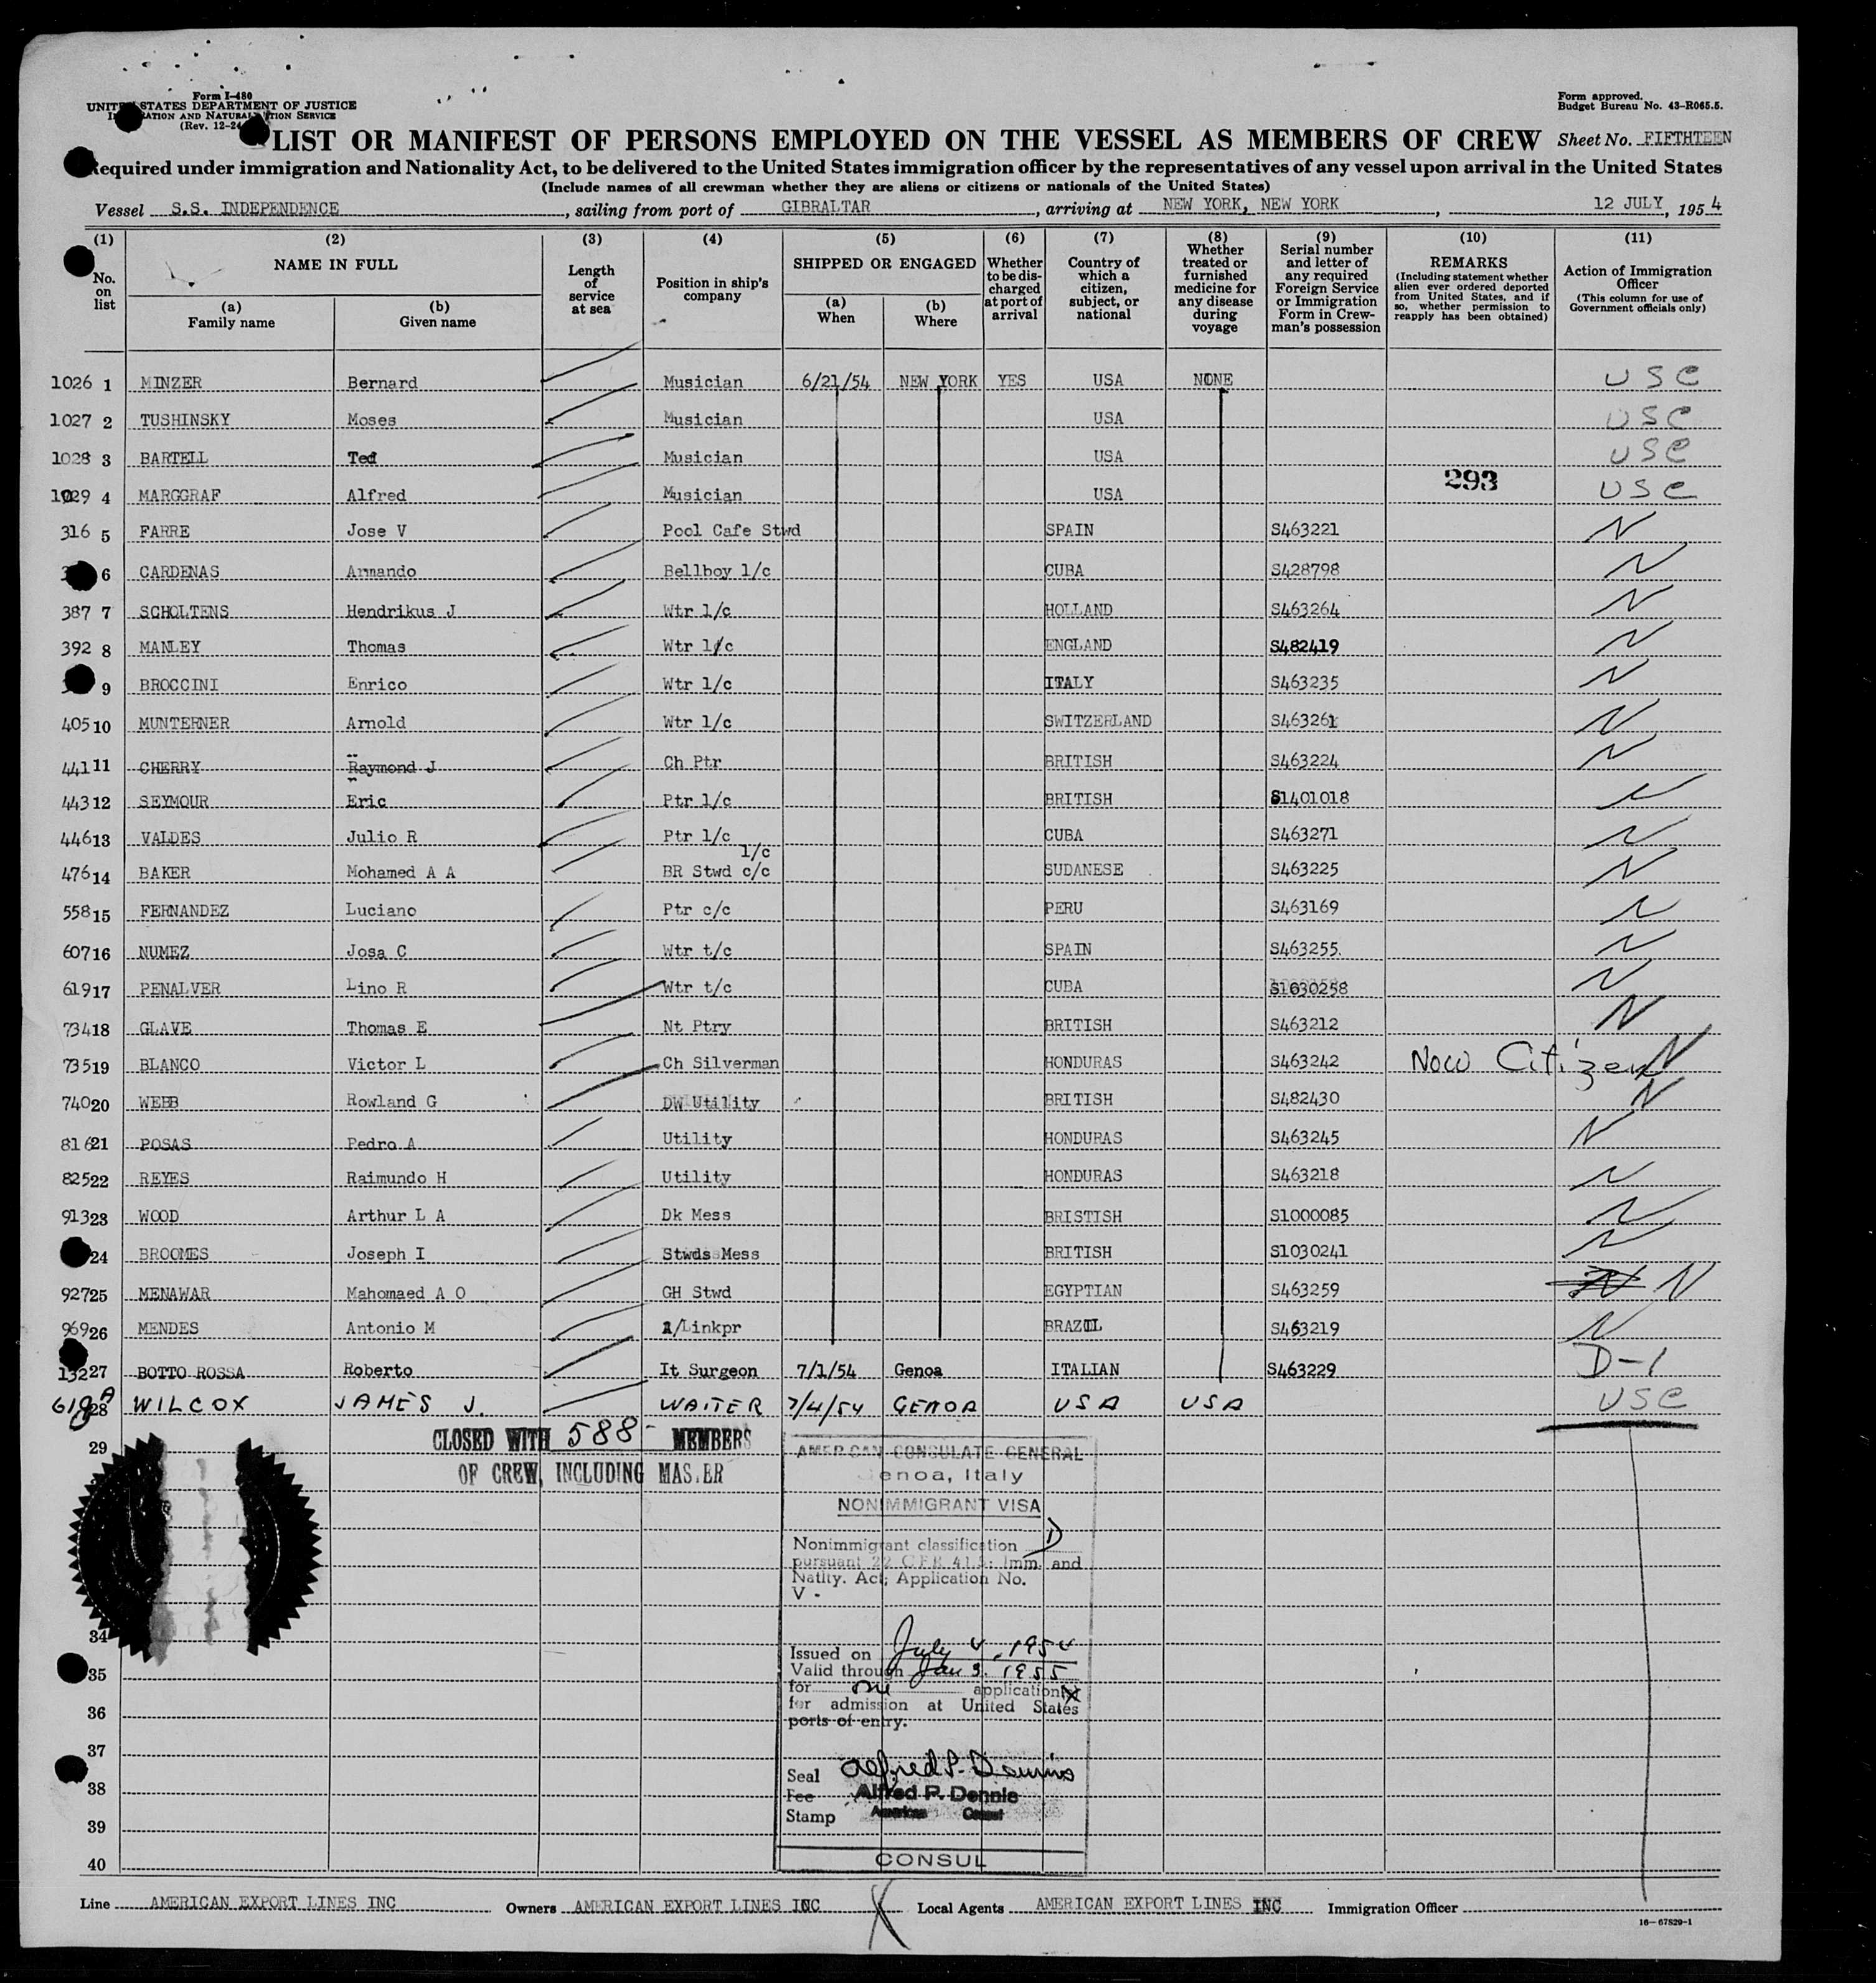 Form I-480
UNITED STATES DEPARTMENT OF JUSTICE
IMMIGRATION AND NATURALIZATION SERVICE
(Rev. 12-24
Form approved.
Budget Bureau No. 43-R065.5.
LIST OR MANIFEST OF PERSONS EMPLOYED ON THE VESSEL AS MEMBERS OF CREW Sheet No. FIFTHTEEN
Required under immigration and Nationality Act, to be delivered to the United States immigration officer by the representatives of any vessel upon arrival in the United States
(Include names of all crewman whether they are aliens or citizens or nationals of the United States)
Vessel S.S. INDEPENDENCE, sailing from port of GIBRALTAR, arriving at NEW YORK, NEW YORK, 12 JULY, 1954
(1) No. on list
(2) NAME IN FULL (a) Family name (b) Given name
(3) Length of service at sea
(4) Position in ship's company
(5) SHIPPED OR ENGAGED (a) When (b) Where
(6) Whether to be discharged at port of arrival
(7) Country of which a citizen, subject, or national
(8) Whether treated or furnished medicine for any disease during voyage
(9) Serial number and letter of any required Foreign Service or Immigration Form in Crewman's possession
(10) REMARKS (Including statement whether alien ever ordered deported from United States, and if so, whether permission to reapply has been obtained)
(11) Action of Immigration Officer (This column for use of Government officials only)
1026 1 MINZER Bernard Musician 6/21/54 NEW YORK YES USA NONE USC
1027 2 TUSHINSKY Moses Musician USA USC
1028 3 BARTELL Ted Musician USA USC
293
1029 4 MARGGRAF Alfred Musician USA USC
316 5 FARRE Jose V Pool Cafe Stwd SPAIN S463221 N
6 CARDENAS Armando Bellboy 1/c CUBA S428798 N
387 7 SCHOLTENS Hendrikus J Wtr 1/c HOLLAND S463264 N
392 8 MANLEY Thomas Wtr 1/c ENGLAND S482419 N
9 BROCCINI Enrico Wtr 1/c ITALY S463235 N
405 10 MUNTERNER Arnold Wtr 1/c SWITZERLAND S463261 N
441 11 CHERRY Raymond J Ch Ptr BRITISH S463224 N
443 12 SEYMOUR Eric Ptr 1/c BRITISH S1401018 N
446 13 VALDES Julio R Ptr 1/c CUBA S463271 N
1/c
476 14 BAKER Mohamed A A BR Stwd c/c SUDANESE S463225 N
558 15 FERNANDEZ Luciano Ptr c/c PERU S463169 N
607 16 NUMEZ Josa C Wtr t/c SPAIN S463255. N
619 17 PENALVER Lino R Wtr t/c CUBA S1630258 N
734 18 GLAVE Thomas E Nt Ptry BRITISH S463212 N
735 19 BLANCO Victor L Ch Silverman HONDURAS S463242 Now Citizen N
740 20 WEBB Rowland G DW Utility BRITISH S482430 N
816 21 POSAS Pedro A Utility HONDURAS S463245 N
825 22 REYES Raimundo H Utility HONDURAS S463218 N
913 23 WOOD Arthur L A Dk Mess BRISTISH S1000085 N
24 BROOMES Joseph I Stwds Mess BRITISH S1030241 N
927 25 MENAWAR Mahomaed A O GH Stwd EGYPTIAN S463259 N N
969 26 MENDES Antonio M 1/Linkpr BRAZIL S463219 N
132 27 BOTTO ROSSA Roberto It Surgeon 7/1/54 Genoa ITALIAN S463229 D-1
618A 28 WILCOX JAMES J. WAITER 7/4/54 GENOA USA USA USC
CLOSED WITH 588 - MEMBERS
OF CREW, INCLUDING MASTER
29
34
35
36
37
38
39
40
AMERICAN CONSULATE GENERAL
Genoa, Italy
NONIMMIGRANT VISA
Nonimmigrant classification D
pursuant 22 C.F.R. 41.5; Imm. and
Natlty. Act; Application No.
V -
Issued on July 4, 1954
Valid through Jan 3. 1955
for one application
for admission at United States
ports of entry.
Seal Alfred P. Dennis
Fee Alfred P. Dennis
Stamp American Consul
CONSUL
Line AMERICAN EXPORT LINES INC Owners AMERICAN EXPORT LINES INC X Local Agents AMERICAN EXPORT LINES INC Immigration Officer
16-67829-1